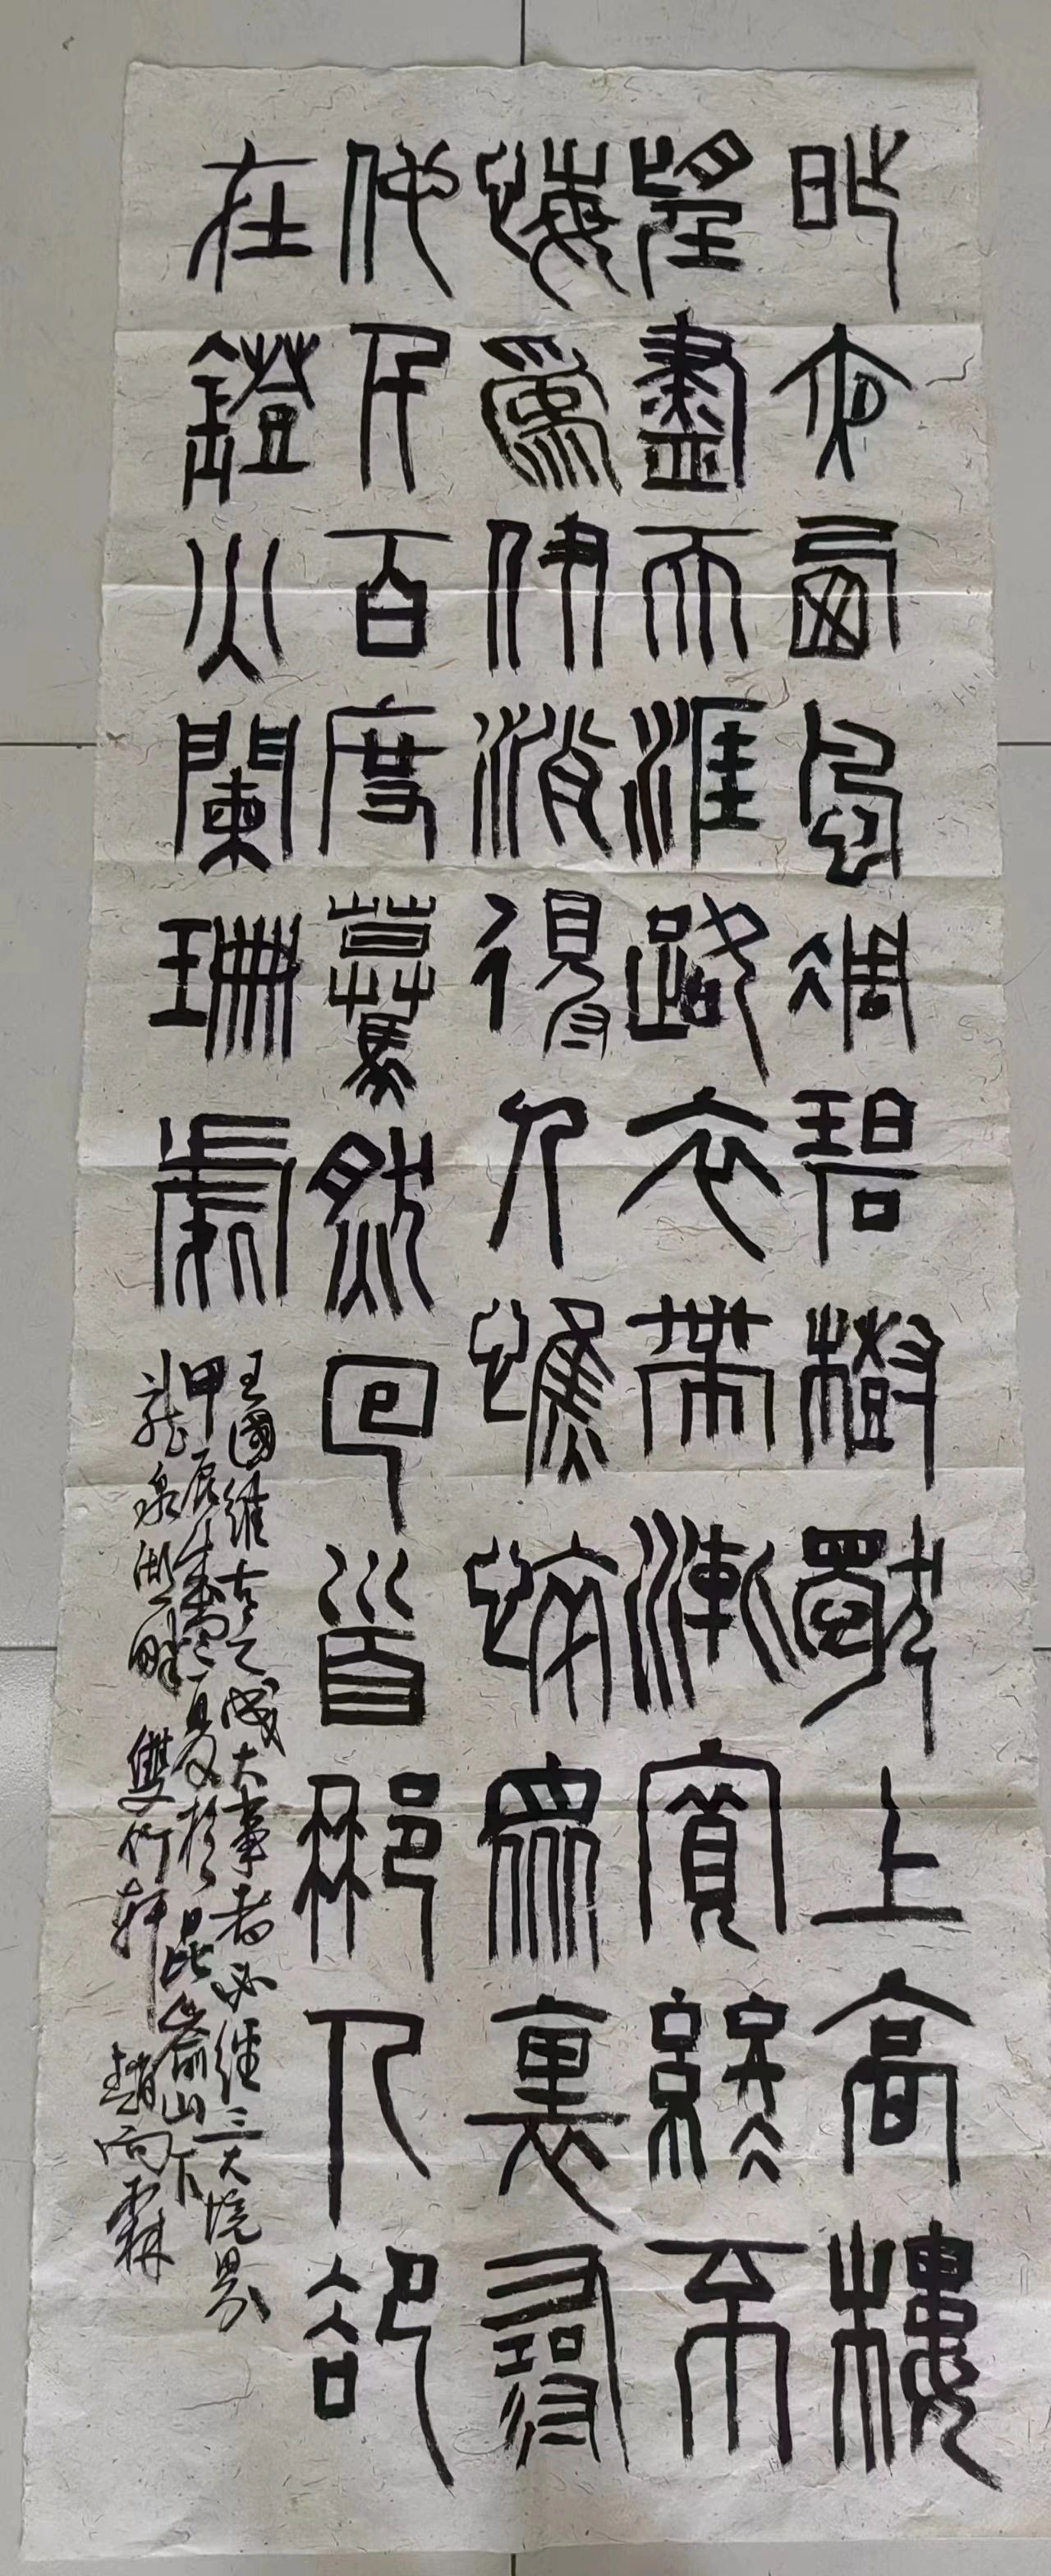 昨夜西風凋碧樹獨上高樓
望盡天涯路衣帶漸寬終不
悔為伊消得人憔悴眾裏尋
他千百度驀然回首那人卻
在鐙火闌珊處
王國維古之成大事者必經三大境界
甲辰夏於昆崙山下
龍泉湖畔 雙竹軒 趙向霖